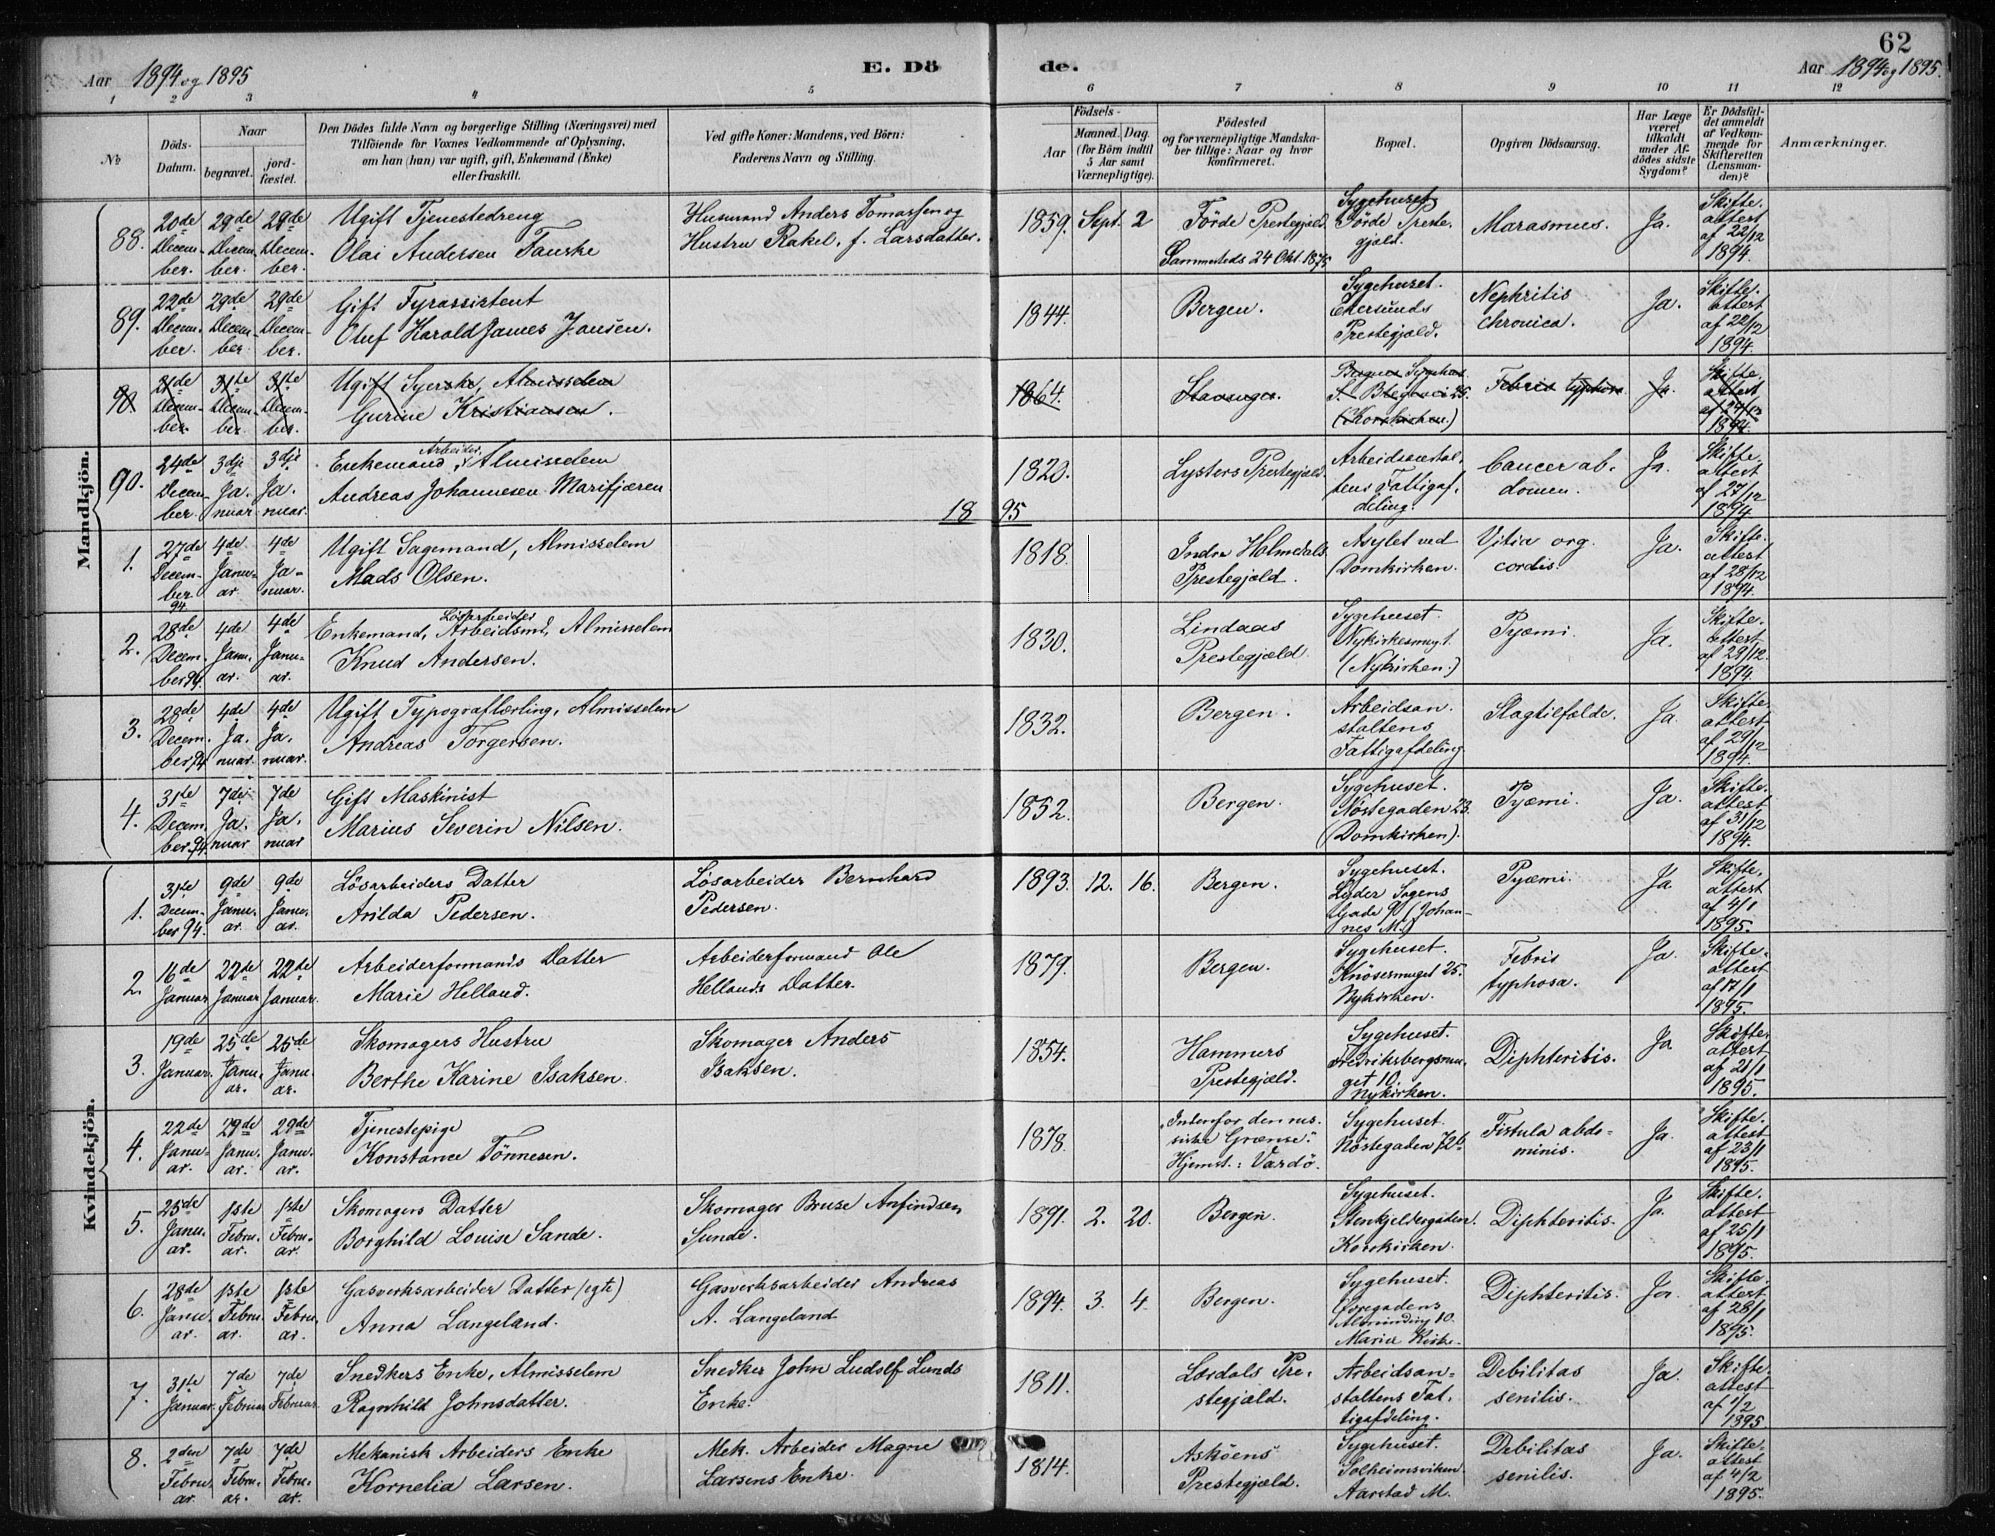 62
Aar 1894 og 1895
E. Dö de.
Aar 1894 og 1895.
1 2 3 4 5 6 7 8 9 10 11 12
No
Döds-Datum.
Naar
begravet.
jord-fæstet.
Den Dödes fulde Navn og borgerlige Stilling (Næringsvei) med
Tilföiende for Voxnes Vedkommende af Oplysning,
om han (hun) var ugift, gift, Enkemand (Enke)
eller fraskilt.
Ved gifte Koner: Mandens, ved Börn:
Faderens Navn og Stilling.
Födsels-
Aar
Maaned. Dag.
(for Börn indtil
5 Aar samt
Værnepligtige).
Födested
og for værnepligtige Mandska-
ber tillige: Naar og hvor
konfirmeret.
Bopæl.
Opgiven Dödsaarsag.
Har Læge
været
tilkaldt
under Af-
dödes sidste
Sygdom?
Er Dödsfal-
det anmeldt
af Vedkom-
mende for
Skifteretten
(Lensman-
den)?
Anmærkninger.
Mandkjön.
88. 20de December. 29de December. 29de December.
Ugift Tjenestedreng
Olai Andersen Fauske
Husmand Anders Tomassen og
Hustru Rakel, f. Larsdatter.
1859. Sept. 2
Förde Prestegjæld.
Sammesteds 24 Okt. 1875
Sygehuset
Förde Preste-
gjæld.
Marasmus. Ja.
Skifte-
attest
af 22/12
1894.
89. 22de December. 29de December. 29de December.
Gift Fyrassistent
Oluf Harold James Jansen.
1844. Bergen.
Sygehuset.
Ekersunds
Prestegjæld.
Nephritis
chronica.
Ja.
Skifte-
attest
af 22/12
1894.
90. 21de December. 31te December. 31te December.
Ugift Syerske, Almisselem
Gurine Kristiansen.
1864. Stavanger.
(Korskirken.)
Febris typhosa Ja.
Skifte-
attest
1894
90. 24de December. 3dje Januar. 3dje Januar.
Enkemand, Arbeider, Almisselem
Andreas Johannesen Marifjæren
1820. Lysters Prestegjæld.
Arbeidsanstal-
tens Fattigaf-
deling.
Cancer ab-
domen.
Ja.
Skifte-
attest
af 27/12
1894
1895
1. 27de December 94 4de Januar. 4de Januar.
Ugift Sagemand, Almisselem
Mads Olsen.
1818.
Indre Holmedals
Prestegjæld.
Asylet ved
Domkirken.
Vitia org.
cordis.
Ja.
Skifte-
attest
af 28/12
1894.
2. 28de December 94. 4de Januar. 4de Januar.
LöSarbeider
Enkemand, Arbeidsmd, Almisselem
Knud Andersen.
1830.
Lindaas
Prestegjæld.
Sygehuset.
Nykirkesmugt.
(Nykirken.)
Pyæmi. Ja.
Skifte-
attest
af 29/12.
1894.
3. 28de December 94 4de Januar. 4de Januar.
Ugift Typograflærling, Almisselem
Andreas Torgersen.
1832. Bergen.
Arbeidsan-
staltens
Fattigafdeling
Slagtilfælde. Ja.
Skifte-
attest
af 29/12
1894.
4. 31te December 94. 7de Januar 7de Januar
Gift Maskinist
Marius Severin Nilsen.
1852. Bergen.
Sygehuset.
Nöstegaden 23.
(Domkirken).
Pyæmi. Ja.
Skifte-
attest
af 31/12
1894.
Kvindekjön.
1. 31te December 94. 9de Januar. 9de Januar.
Lösarbeiders Datter
Arilda Pedersen.
Lösarbeider Bernhard
Pedersen.
1893. 12. 16. Bergen.
Sygehuset.
Lyder Sagens
Gade 9 (Johan-
nes M.)
Pyæmi. Ja
Skifte-
attest
af 4/1
1895.
2. 16de Januar. 22de Januar 22de Januar.
Arbeiderformands Datter
Marie Helland.
Arbeiderformand Ole
Hellands Datter.
1879. Bergen.
Sygehuset.
Knösesmuget 25.
Nykirken.
Febris
typhosa.
Ja.
Skifte-
attest
af 17/1
1895.
3. 19de Januar. 25de Januar. 25de Januar.
Skomagers Hustru
Berthe Karine Isaksen.
Skomager Anders
Isaksen.
1854.
Hammers
Prestegjæld.
Sygehuset.
Fredriksbergsmu-
get 10.
Nykirken.
Diphteritis. Ja
Skifte-
attest
af 21/1
1895.
4. 22de Januar. 29de Januar. 29de Januar.
Tjenestepige
Konstance Tönnesen.
1878.
"Indenfor den rus-
siske Grænse."
Hjemst.: Vardö.
Sygehuset.
Nöstegaden 72b.
Fistula abdo-
minis.
Ja.
Skifte-
attest
af 23/1
1895.
5. 25de Januar. 1ste Februar. 1ste Februar.
Skomagers Datter
Borghild Louise Sande.
Skomager Bruse Anfindsen
Sunde.
1891. 2. 20. Bergen.
Sygehuset.
Stenkjeldergaden.
Korskirken.
Diphteritis. Ja.
Skifte-
attest
af 25/1
1895.
6. 28de Januar. 1ste Februar. 1ste Februar.
Gasverksarbeider Datter (egte)
Anna Langeland.
Gasverksarbeider Andreas
A. Langeland
1894. 3. 4. Bergen.
Sygehuset.
Övregadens
Almending 10.
Maria Kirke.
Diphteritis. Ja.
Skifte-
attest
af 28/1
1895.
7. 31te Januar. 7de Februar 7de Februar.
Snedkers Enke, Almisselem
Ragnhild Johnsdatter.
Snedker John Ludolf Lunds
Enke.
1811.
Lærdals Pre-
stegjæld.
Arbeidsan-
staltens Fat-
tigafdeling.
Debilitas
senilis.
Ja.
Skifte-
attest
af 1/2
1895
8. 2den Februar. 7de Februar. 7de Februar.
Mekanisk Arbeiders Enke
Kornelia Larsen.
Mek. Arbeider Magne
Larsens Enke.
1814.
Asköens
Prestegjæld.
Sygehuset.
Solheimsviken
Aarstad M.
Debilitas
senilis.
Ja.
Skifte-
attest
af 4/2
1895.